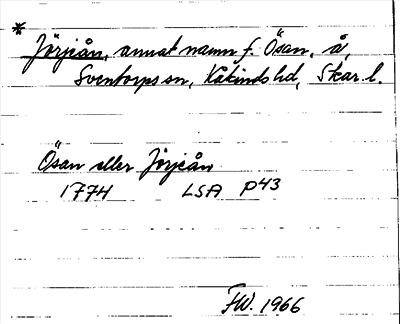 *
Jörjeån, annat namn f. Ösan, å,
Sventorps sn, Kåkinds hd, Skar. l.
Ösan eller Jörjeån
1774 LSA P43
FW. 1966